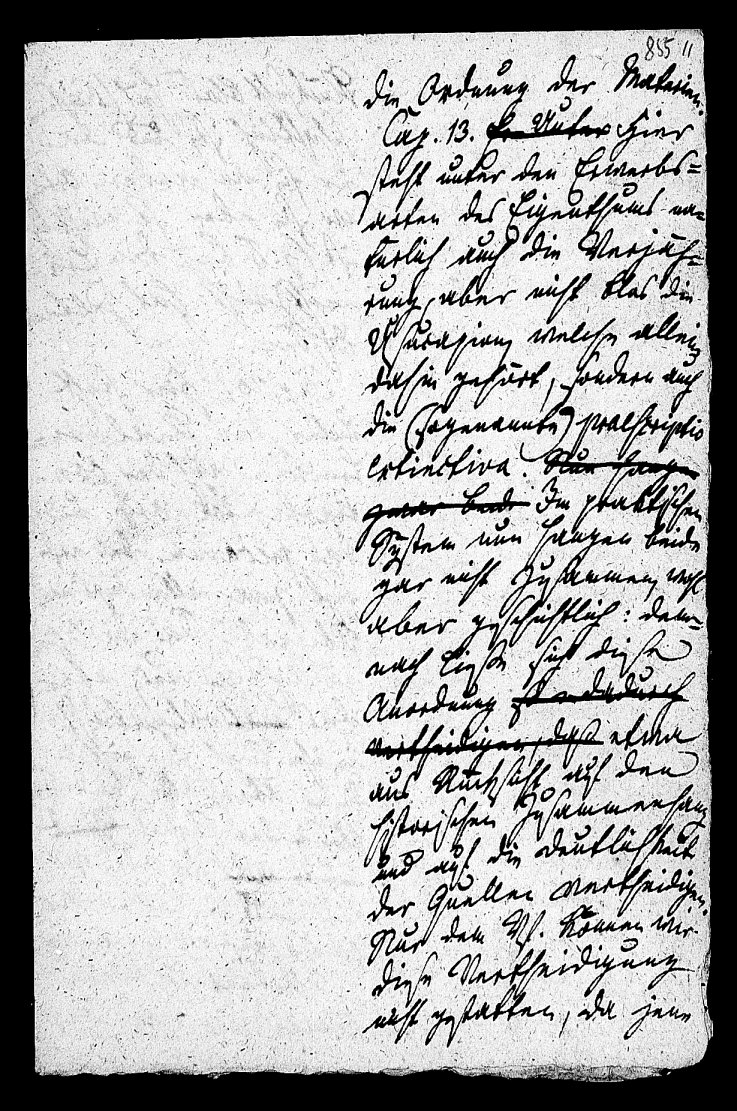 855 11
die Ordnung der Materien.
Cap. 13. Unter Hier
steht unter den Erwerbs=
arten des Eigenthums na=
türlich auch die Verjäh=
rung, aber nicht blos die
Usucapion, welche allein
dahin gehört, sondern auch
die (sogenannte) praescriptio
extinctiva. Nun hangen
zwar beide Im praktischen
System nun hangen beide
gar nicht zusammen, wohl
aber geschichtlich: dem=
nach ließe sich diese
Anordnung dadurch
vertheidigen, daß etwa
aus Rücksicht auf den
historischen Zusammenhang
und auf die Deutlichkeit
der Quellen vertheidigen.
Nur dem Vf. können wir
diese Vertheidigung
nicht gestatten, da jene